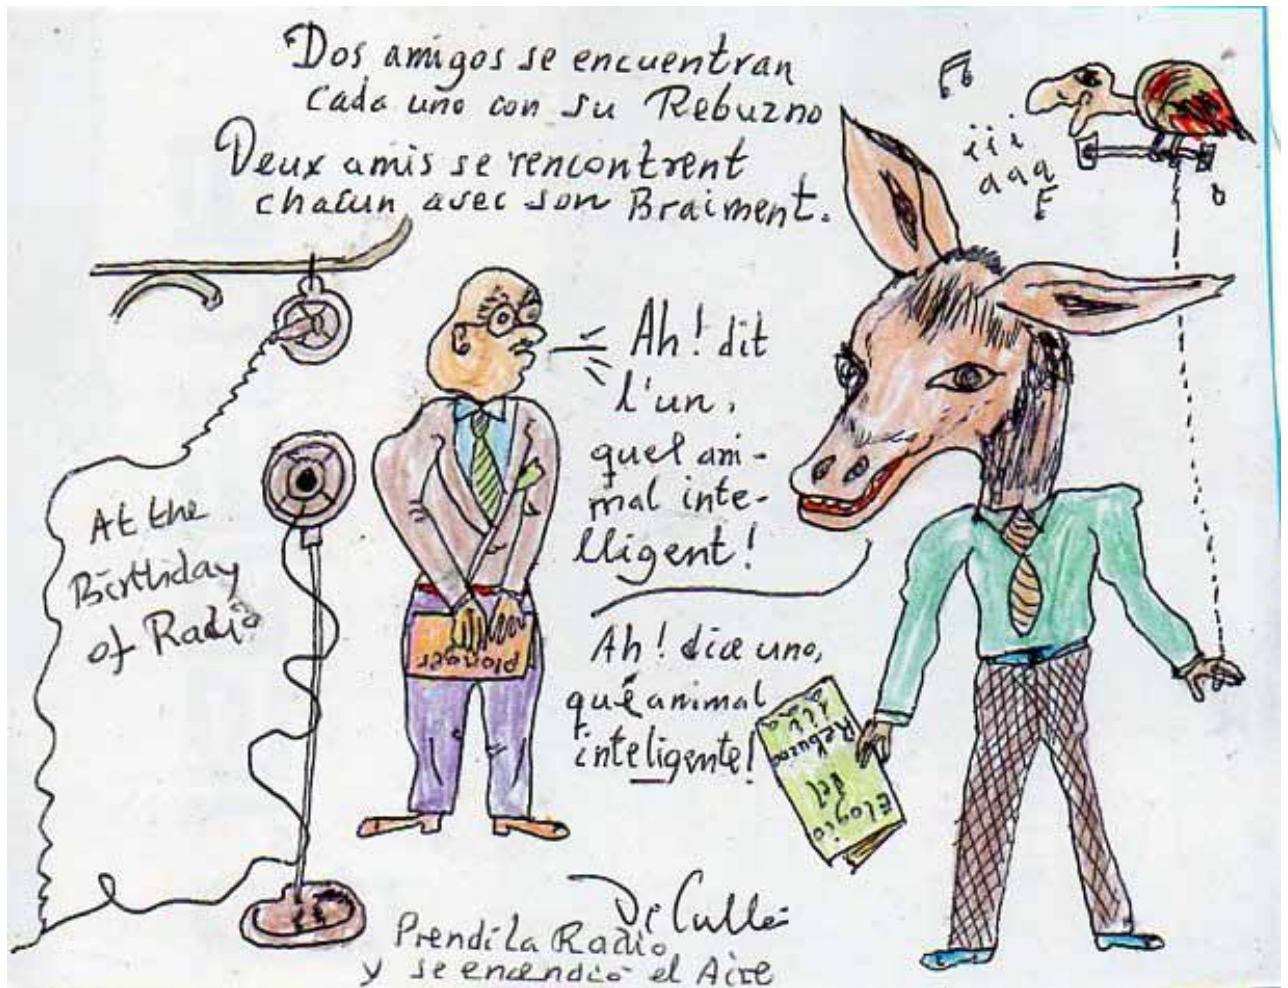 Dos amigos se encuentran
cada uno con su Rebuzno
Deux amis se rencontrent
chacun avec son Braiment.
iii
aaa
At the
Birthday
of Radio
Ah! dit
l'un,
quel ani-
mal inte-
lligent!
Ah! dice uno,
qué animal
inteligente!
Elogio
del
Rebuzno
Prendí la Radio
y se encendió el Aire